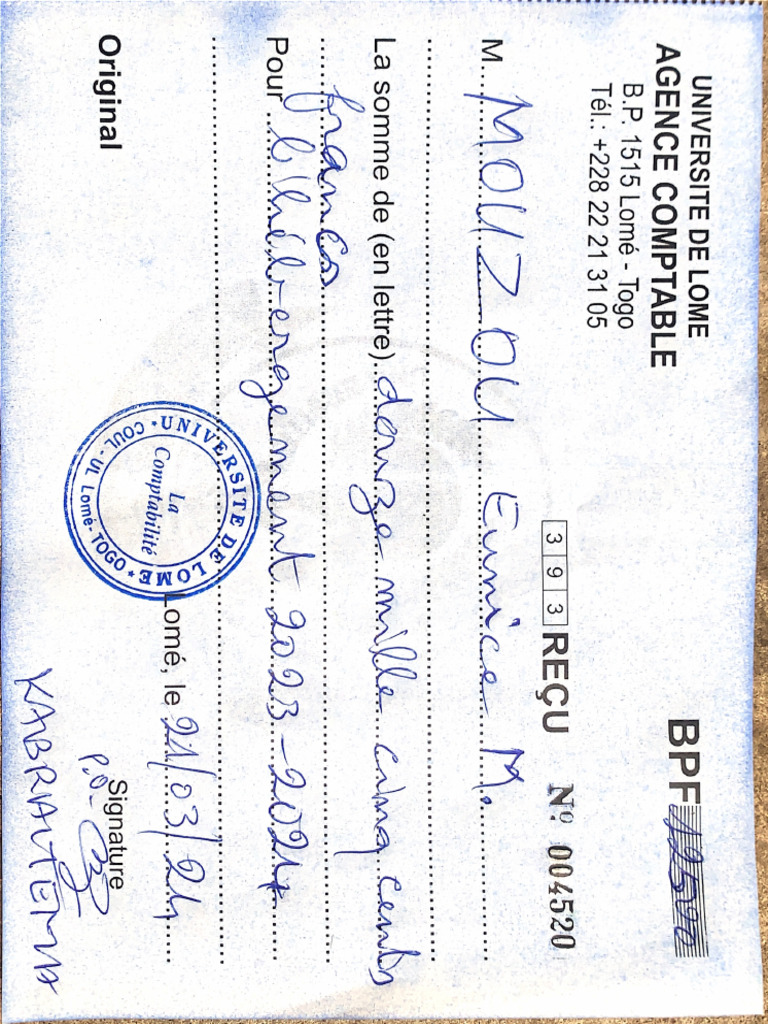 UNIVERSITE DE LOME
AGENCE COMPTABLE
B.P. 1515 Lomé - Togo
Tél.: +228 22 21 31 05
BPF 12500
393 REÇU Nº 004520
M. MOUZOU Eunice M.
La somme de (en lettre) douze mille cinq cents
francs
Pour l'hébergement 2023-2024
Lomé, le 21/03/24
Original
Signature
P.O.
UNIVERSITE DE LOME
COUL - UL Lomé-TOGO
La
Comptabilité